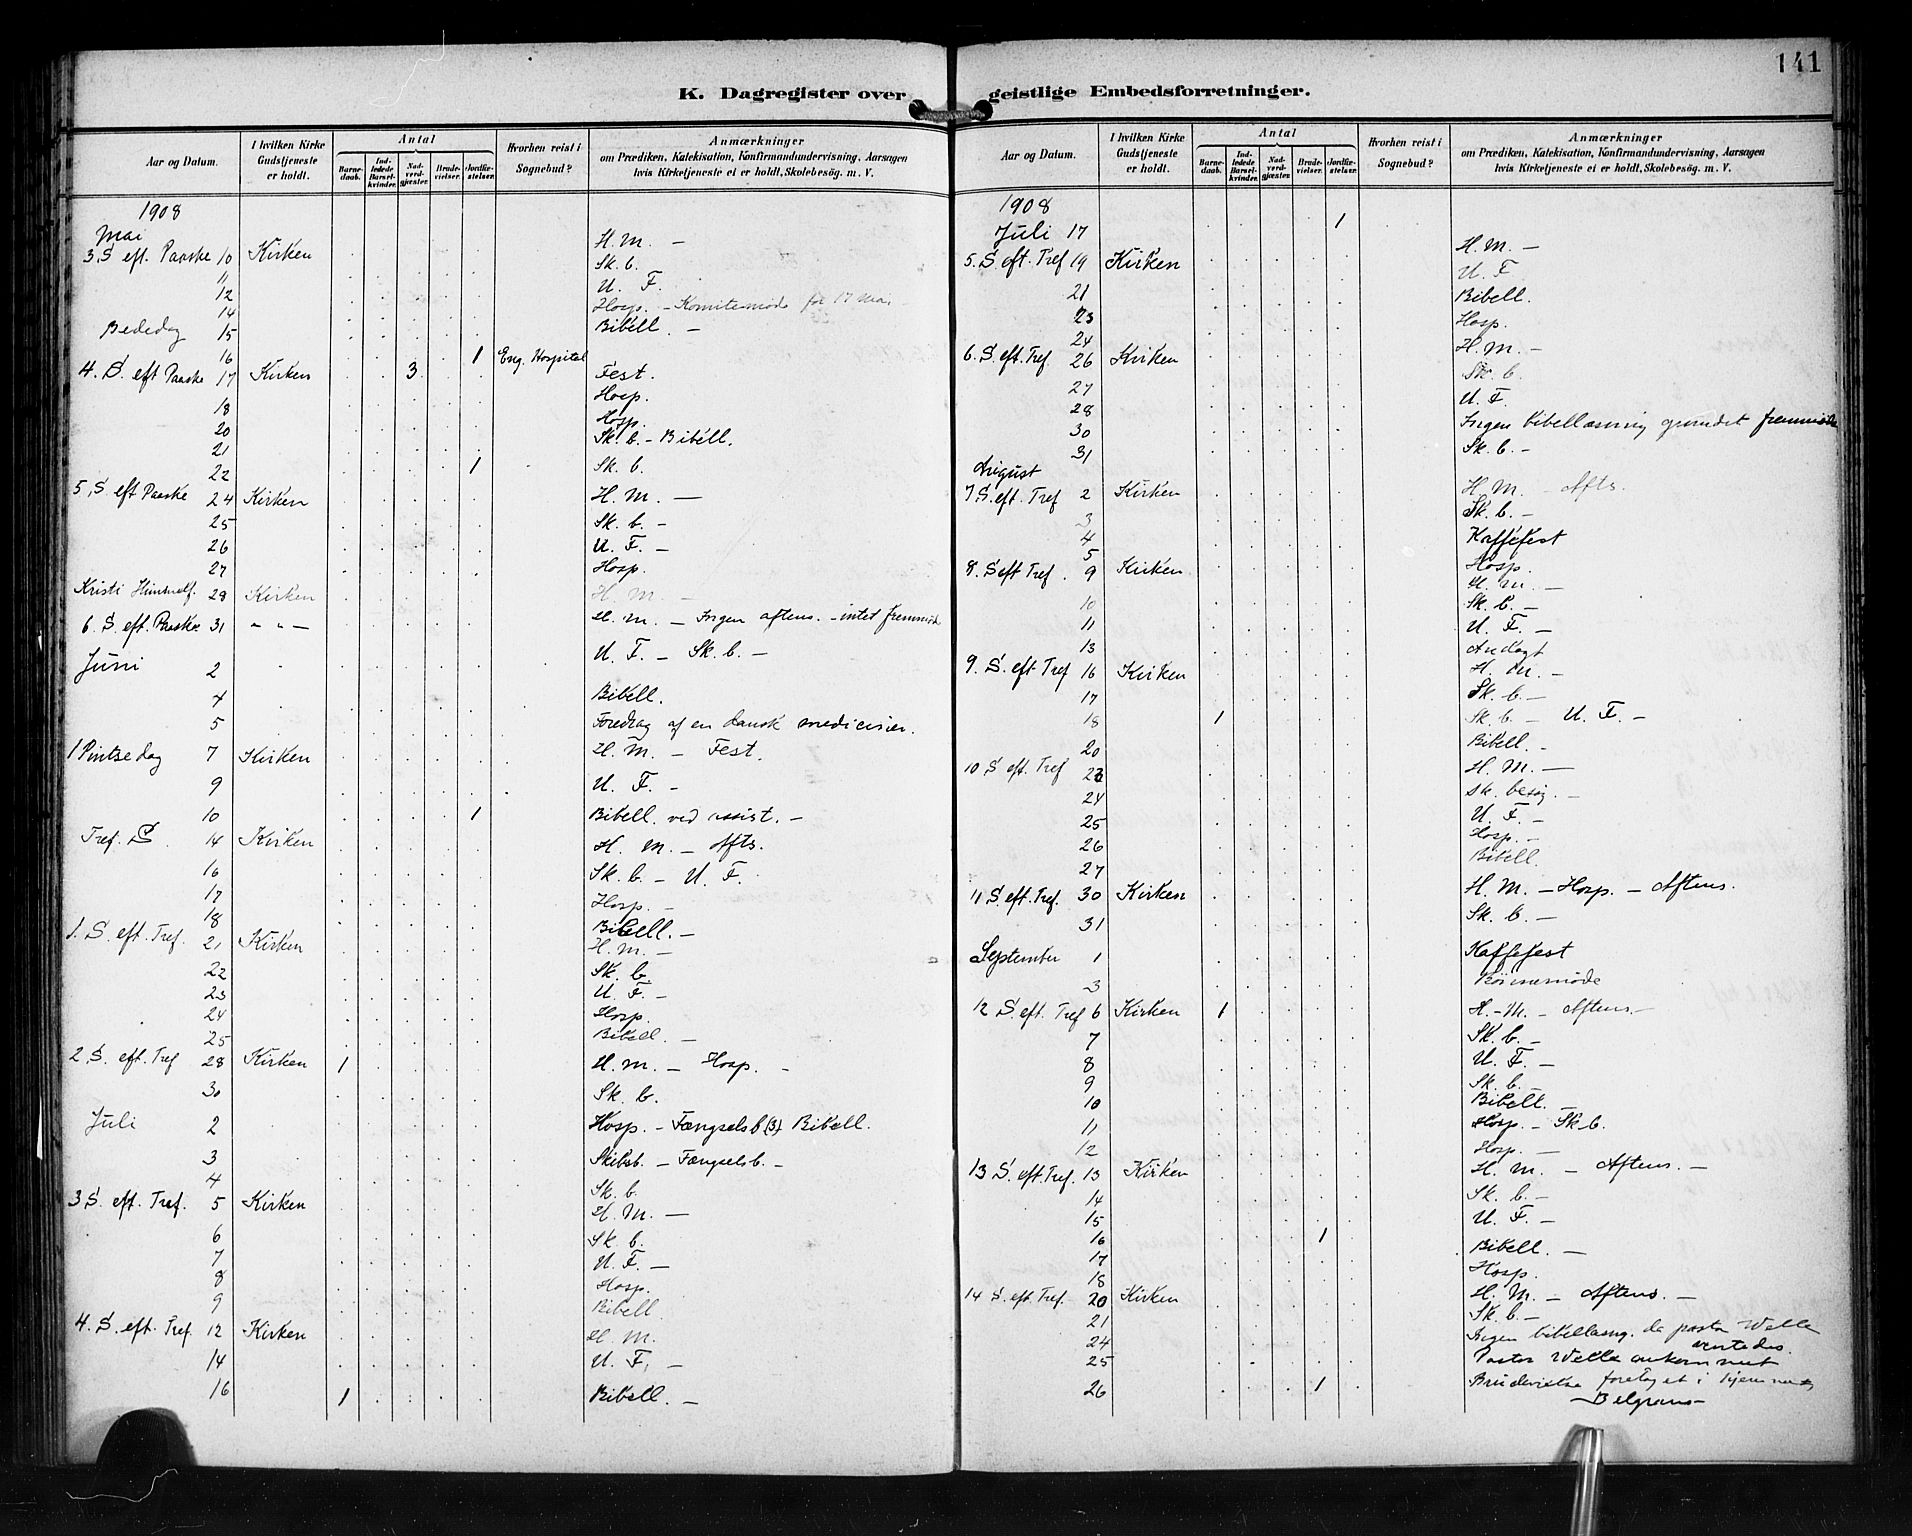 141
K. Dagregister over geistlige Embedsforretninger.
Aar og Datum. | I hvilken Kirke Gudstjeneste er holdt. | Antal | Barnedaab. | Indledede Barselkvinder. | Nadverdgjæster. | Brudevielser. | Jordfæstelser. | Hvorhen reist i Sognebud? | Anmærkninger om Prædiken, Katekisation, Konfirmandundervisning, Aarsagen hvis Kirketjeneste ei er holdt, Skolebesög. m. V.
1908
Mai
3, S eft. Paaske 10 Kirken H. M. –
11 Sk. b.
12 U. F.
14 Hosp. – Komitemøde for 17 mai
Bededag 15 Bibell. –
16 1 Eng. Hospital
4. S. eft Paaske 17 Kirken 3 Fest.
18 Hosp.
20 Hosp.
21 Sk. b. – Bibell.
22 1 Sk. b.
5, S eft Paaske 24 Kirken H. M. –
25 Sk. b. –
26 U. F. –
27 Hosp.
Kristi Himmelf. 28 Kirken H. M. –
6. S. eft. Paaske 31 " " – H. M. – Ingen aftens. – intet fremmøde
Juni 2 U. F. – Sk. b. –
4 Bibell.
5 Foredrag af en dansk mediciner.
1 Pintsedag 7 Kirken H. M. – Fest.
9 U. F. –
10 1 Bibell. ved assist. –
Tref. S 14 Kirken H. M. – Afts.
16 Sk. b. – U. F.
17 Hosp. –
18 Bibell. –
1. S. eft. Tref. 21 Kirken H. M. –
22 Sk. b.
23 U. F. –
24 Hosp.
25 Bibell. –
2 S. eft. Tref 28 Kirken 1 H. M. – Hosp. –
30 Sk. b.
Juli 2 Hosp. – Fængselsb (3). Bibell.
3 Skibsb. – Fængselsb. –
4 Sk. b.
3 S. eft. Tref. 5 Kirken H. M. –
6 Sk. b.
7 U. F. –
8 Hosp.
9 Bibell.
4. S. eft. Tref. 12 Kirken H. M.
14 U. F. –
16 1 Bibell. –
Aar og Datum. | I hvilken Kirke Gudstjeneste er holdt. | Antal | Barnedaab. | Indledede Barselkvinder. | Nadverdgjæster. | Brudevielser. | Jordfæstelser. | Hvorhen reist i Sognebud? | Anmærkninger om Prædiken, Katekisation, Konfirmandundervisning, Aarsagen hvis Kirketjeneste ei er holdt, Skolebesög. m. V.
1908
Juli 17 1
5. S. eft. Tref 19 Kirken H. M. –
21 U. F
23 Bibell.
24 Hosp.
6. S. eft. Tref. 26 Kirken H. M. –
27 Sk. b.
28 U. F.
30 Ingen bibellæsning grundet fremmøde
31 Sk. b. –
August
7 S. eft. Tref 2 Kirken H. M. – Afts.
3 Sk. b. –
4 Kaffefest
5 Hosp.
8. S eft Tref. 9 Kirken H. M. –
10 Sk. b. –
11 U. F. –
13 Andagt
9. S. eft. Tref 16 Kirken H. M. –
17 Sk. b. –
18 1 Sk. b – U. F. –
20 Bibell. –
10 S eft. Tref 23 H. M. –
24 Sk. besøg. –
25 U. F. –
26 Hosp. –
27 Bibell.
11 S. eft. Tref. 30 Kirken H. M. – Hosp. – Aftens.
31 Sk. b. –
September 1 Kaffefest
3 Børnemøde
12 S. eft. Tref 6 Kirken 1 H. – M. – Aftens. –
7 Sk. b. –
8 U. F. –
9 Sk. b. –
10 Bibell. –
11 Hosp. – Sk. b.
12 Hosp. –
13 S. eft. Tref. 13 Kirken H. M. – Aftens. –
14 Sk. b. –
15 U. F. –
16 1
17 Bibell. –
18 Hosp.
14 S. eft. Tref. 20 Kirken H. M. – Aftens. –
21 Sk. b. –
24 Ingen bibellæsng. da pastor Welle ventedes.
25 Pastor Welle ankommet
26 1 Brudevielse foretaget i hjemmet, Belgrano –